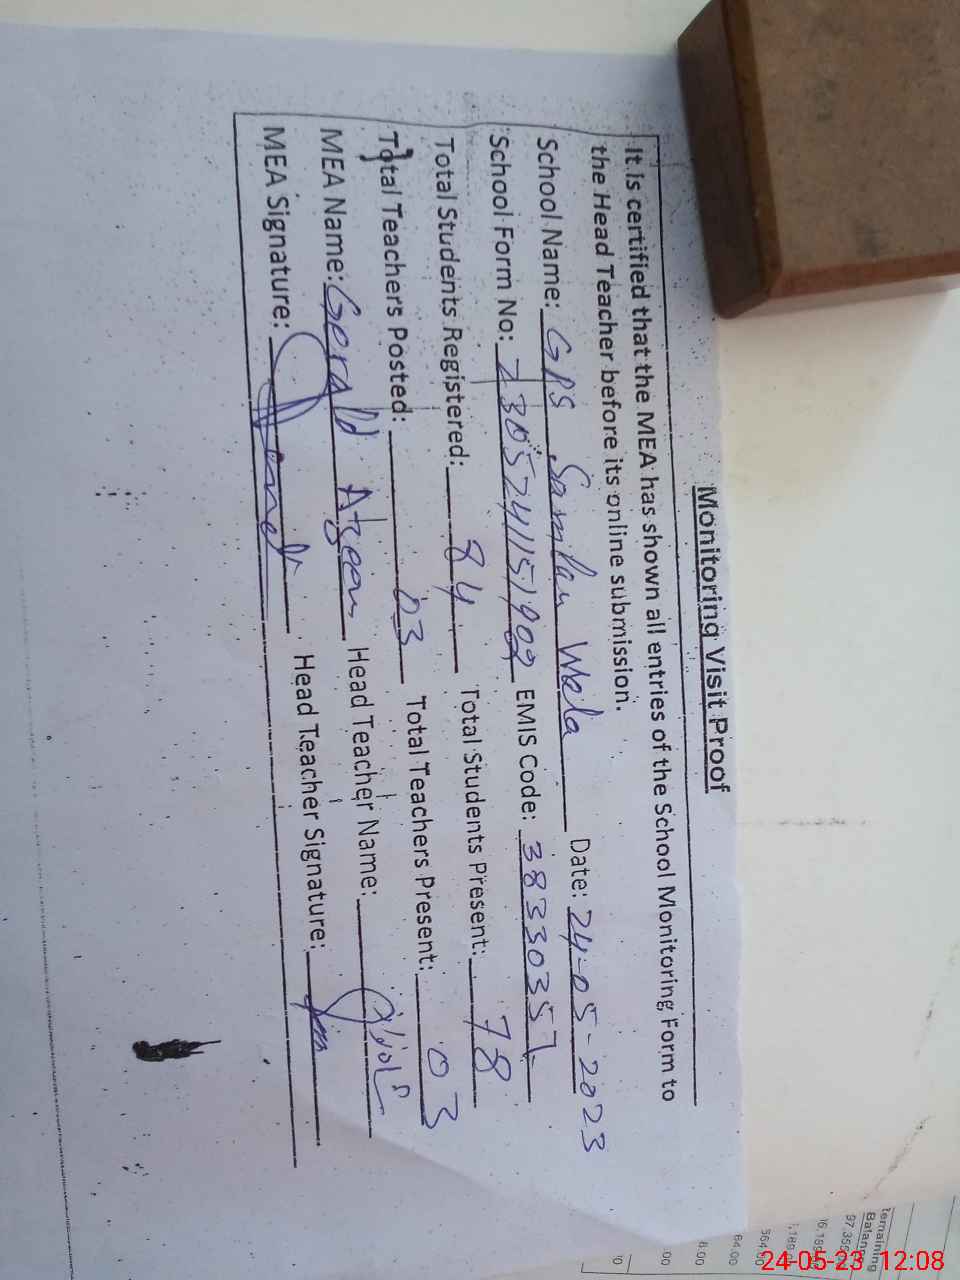 Monitoring Visit Proof
It is certified that the MEA has shown all entries of the School Monitoring Form to
the Head Teacher before its online submission.
School Name: GPS Samlan Wala Date: 24-05-2023
School Form No: EMIS Code: 38330357
Total Students Registered: 84 Total Students Present: 78
Total Teachers Posted: 03 Total Teachers Present: 03
MEA Name: Gerald Head Teacher Name:
MEA Signature: Head Teacher Signature:
Remaining
Balance
64.00
24-05-23 12:08